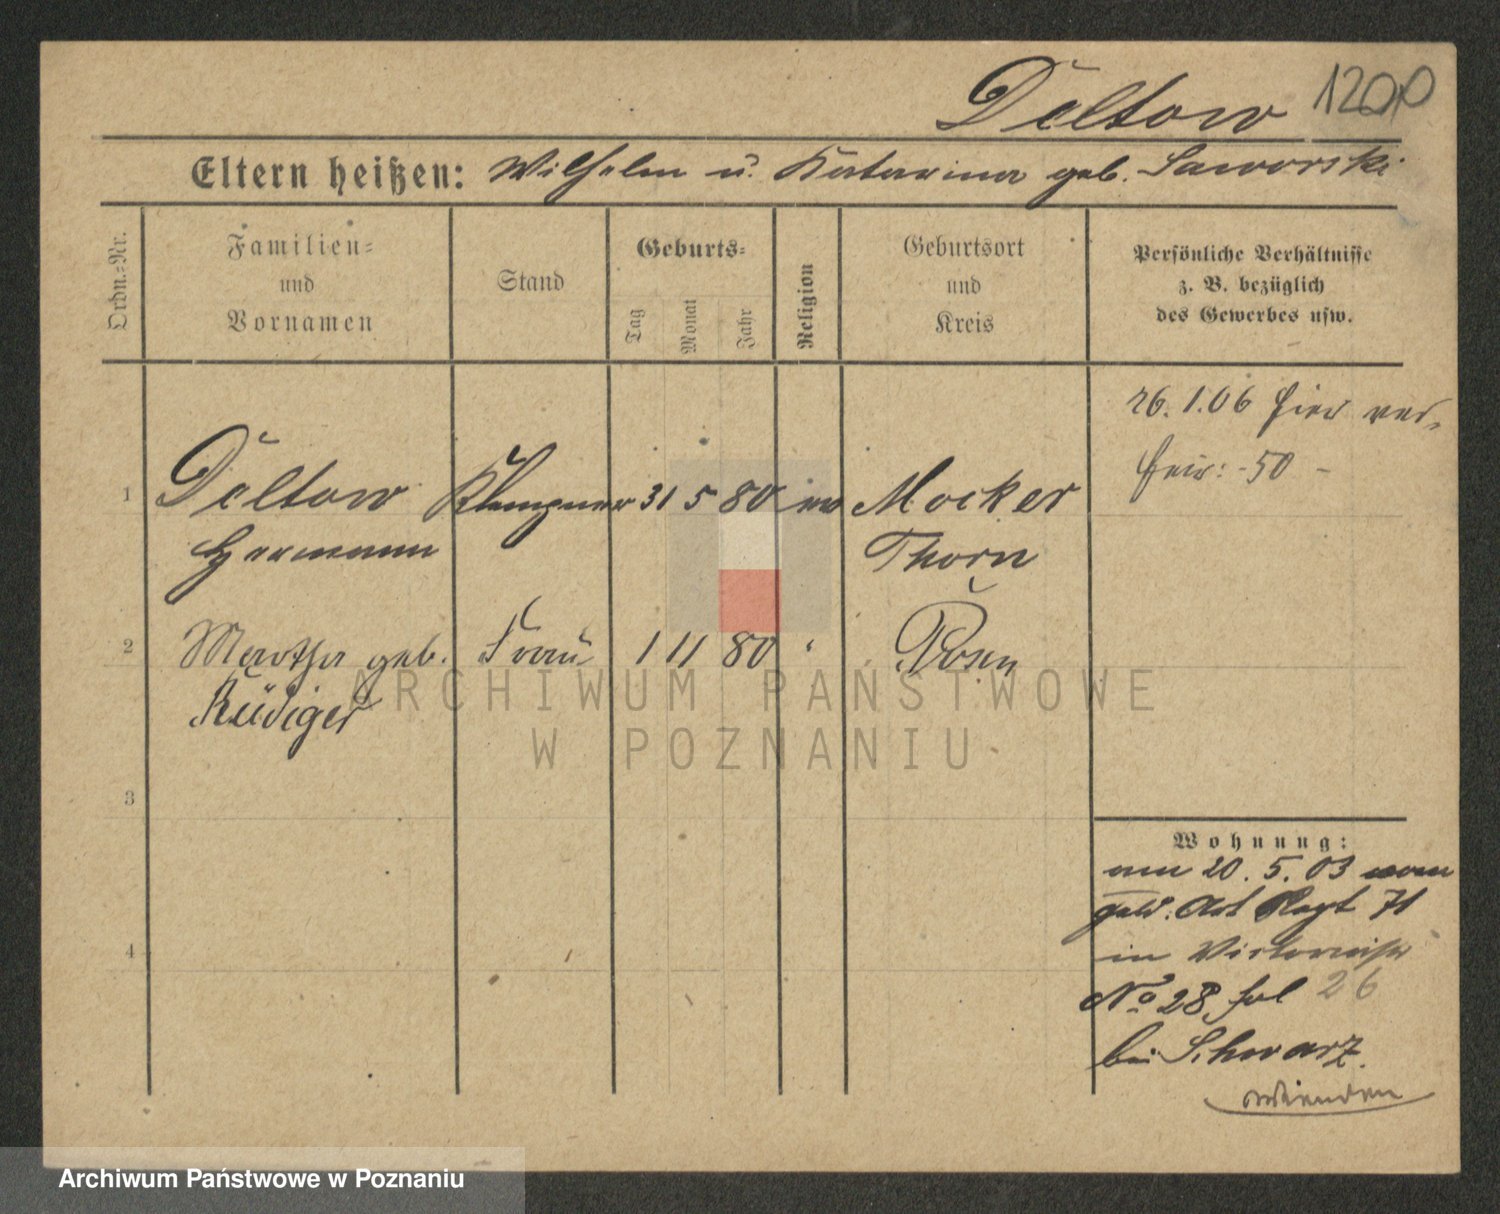 Deltow 1200
Eltern heißen: Wilhelm u. Katarina geb. Saworski
Ordn.=Nr.
Familien= und Vornamen
Stand
Geburts=
Tag
Monat
Jahr
Religion
Geburtsort und Kreis
Persönliche Verhältnisse z. B. bezüglich des Gewerbes usw.
26. 1. 06 hier ver-
heir: -50 -
1 Deltow Klempner 31 5 80 ev Mocker
Hermann Thorn
2 Martha geb. Frau 1 11 80 " Posen
Rüdiger
3
4
Wohnung:
am 20. 5. 03 vom
Feld. Art Regt 71
in
No 28 fol 26
bei Schwarz.
wenden
ARCHIWUM PAŃSTWOWE
W POZNANIU
Archiwum Państwowe w Poznaniu